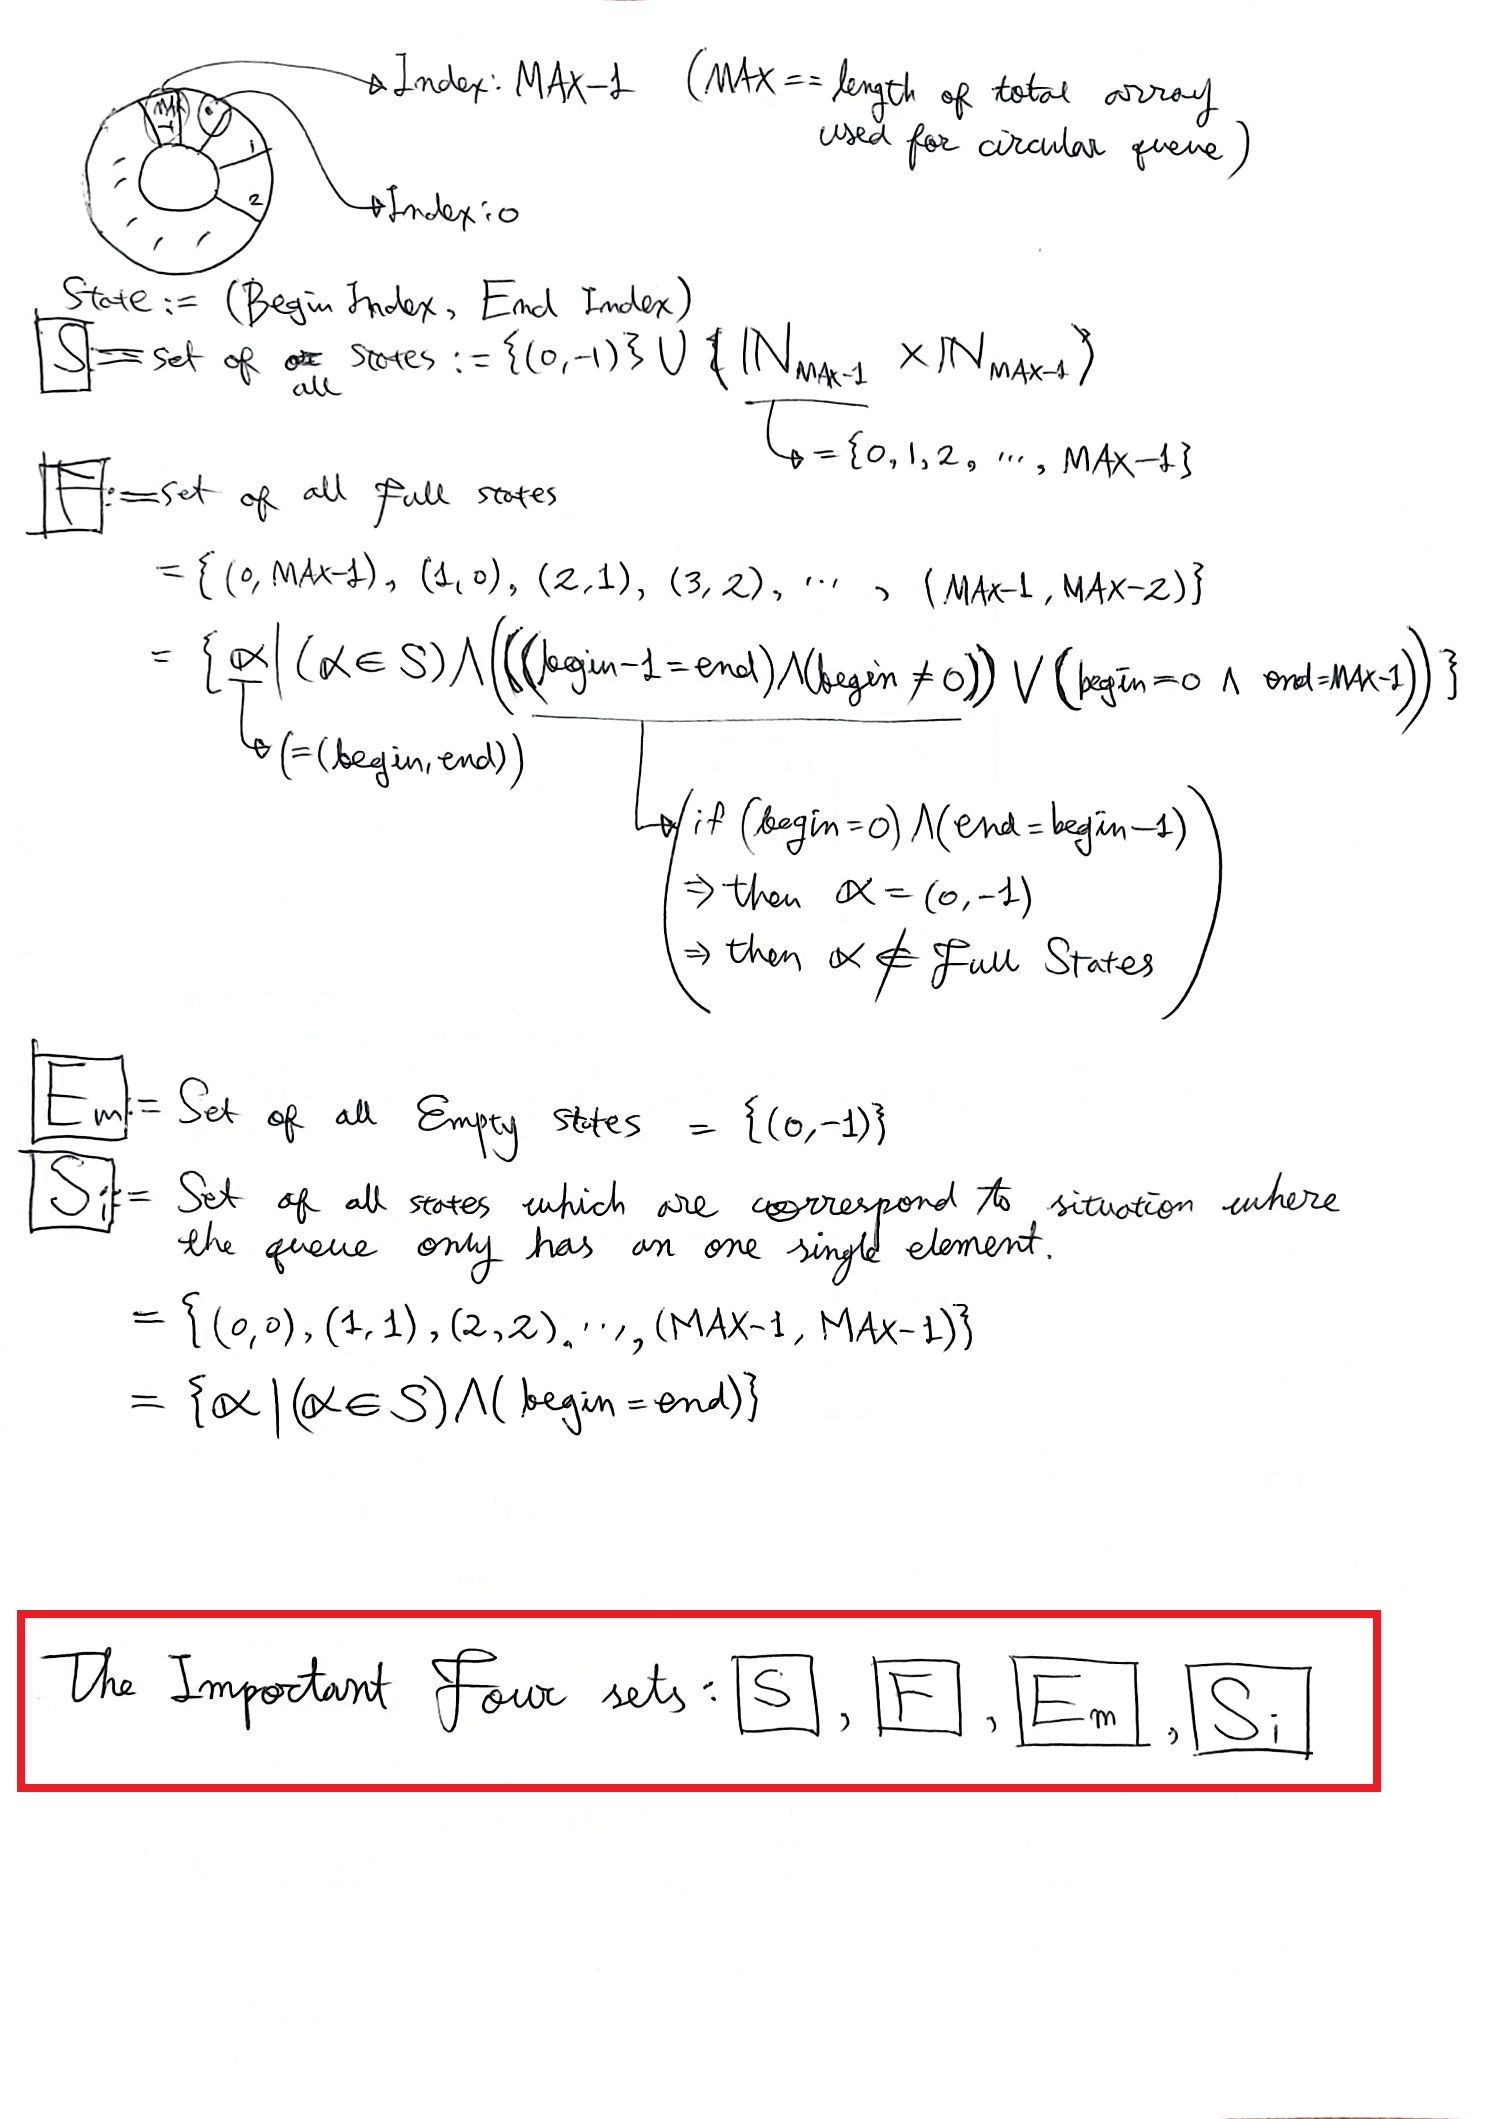 Index: MAX-1 (MAX == length of total array
used for circular queue)
MAX
-1
0
1
2
Index: 0
State := (Begin Index, End Index)
S = set of all states := {(0,-1)} ∪ {ℕ_MAX-1 × ℕ_MAX-1}
= {0, 1, 2, ..., MAX-1}
F := set of all Full states
= {(0, MAX-1), (1,0), (2,1), (3,2), ... , (MAX-1, MAX-2)}
= {α | (α ∈ S) ∧ ((((begin-1 = end) ∧ (begin ≠ 0)) ∨ (begin = 0 ∧ end = MAX-1))}
(= (begin, end))
(if (begin = 0) ∧ (end = begin-1)
⇒ then α = (0,-1)
⇒ then α ∉ Full States)
Em := Set of all Empty states = {(0,-1)}
Si := Set of all states which are correspond to situation where
the queue only has an one single element.
= {(0,0), (1,1), (2,2), ..., (MAX-1, MAX-1)}
= {α | (α ∈ S) ∧ (begin = end)}
The Important Four sets: S, F, Em, Si